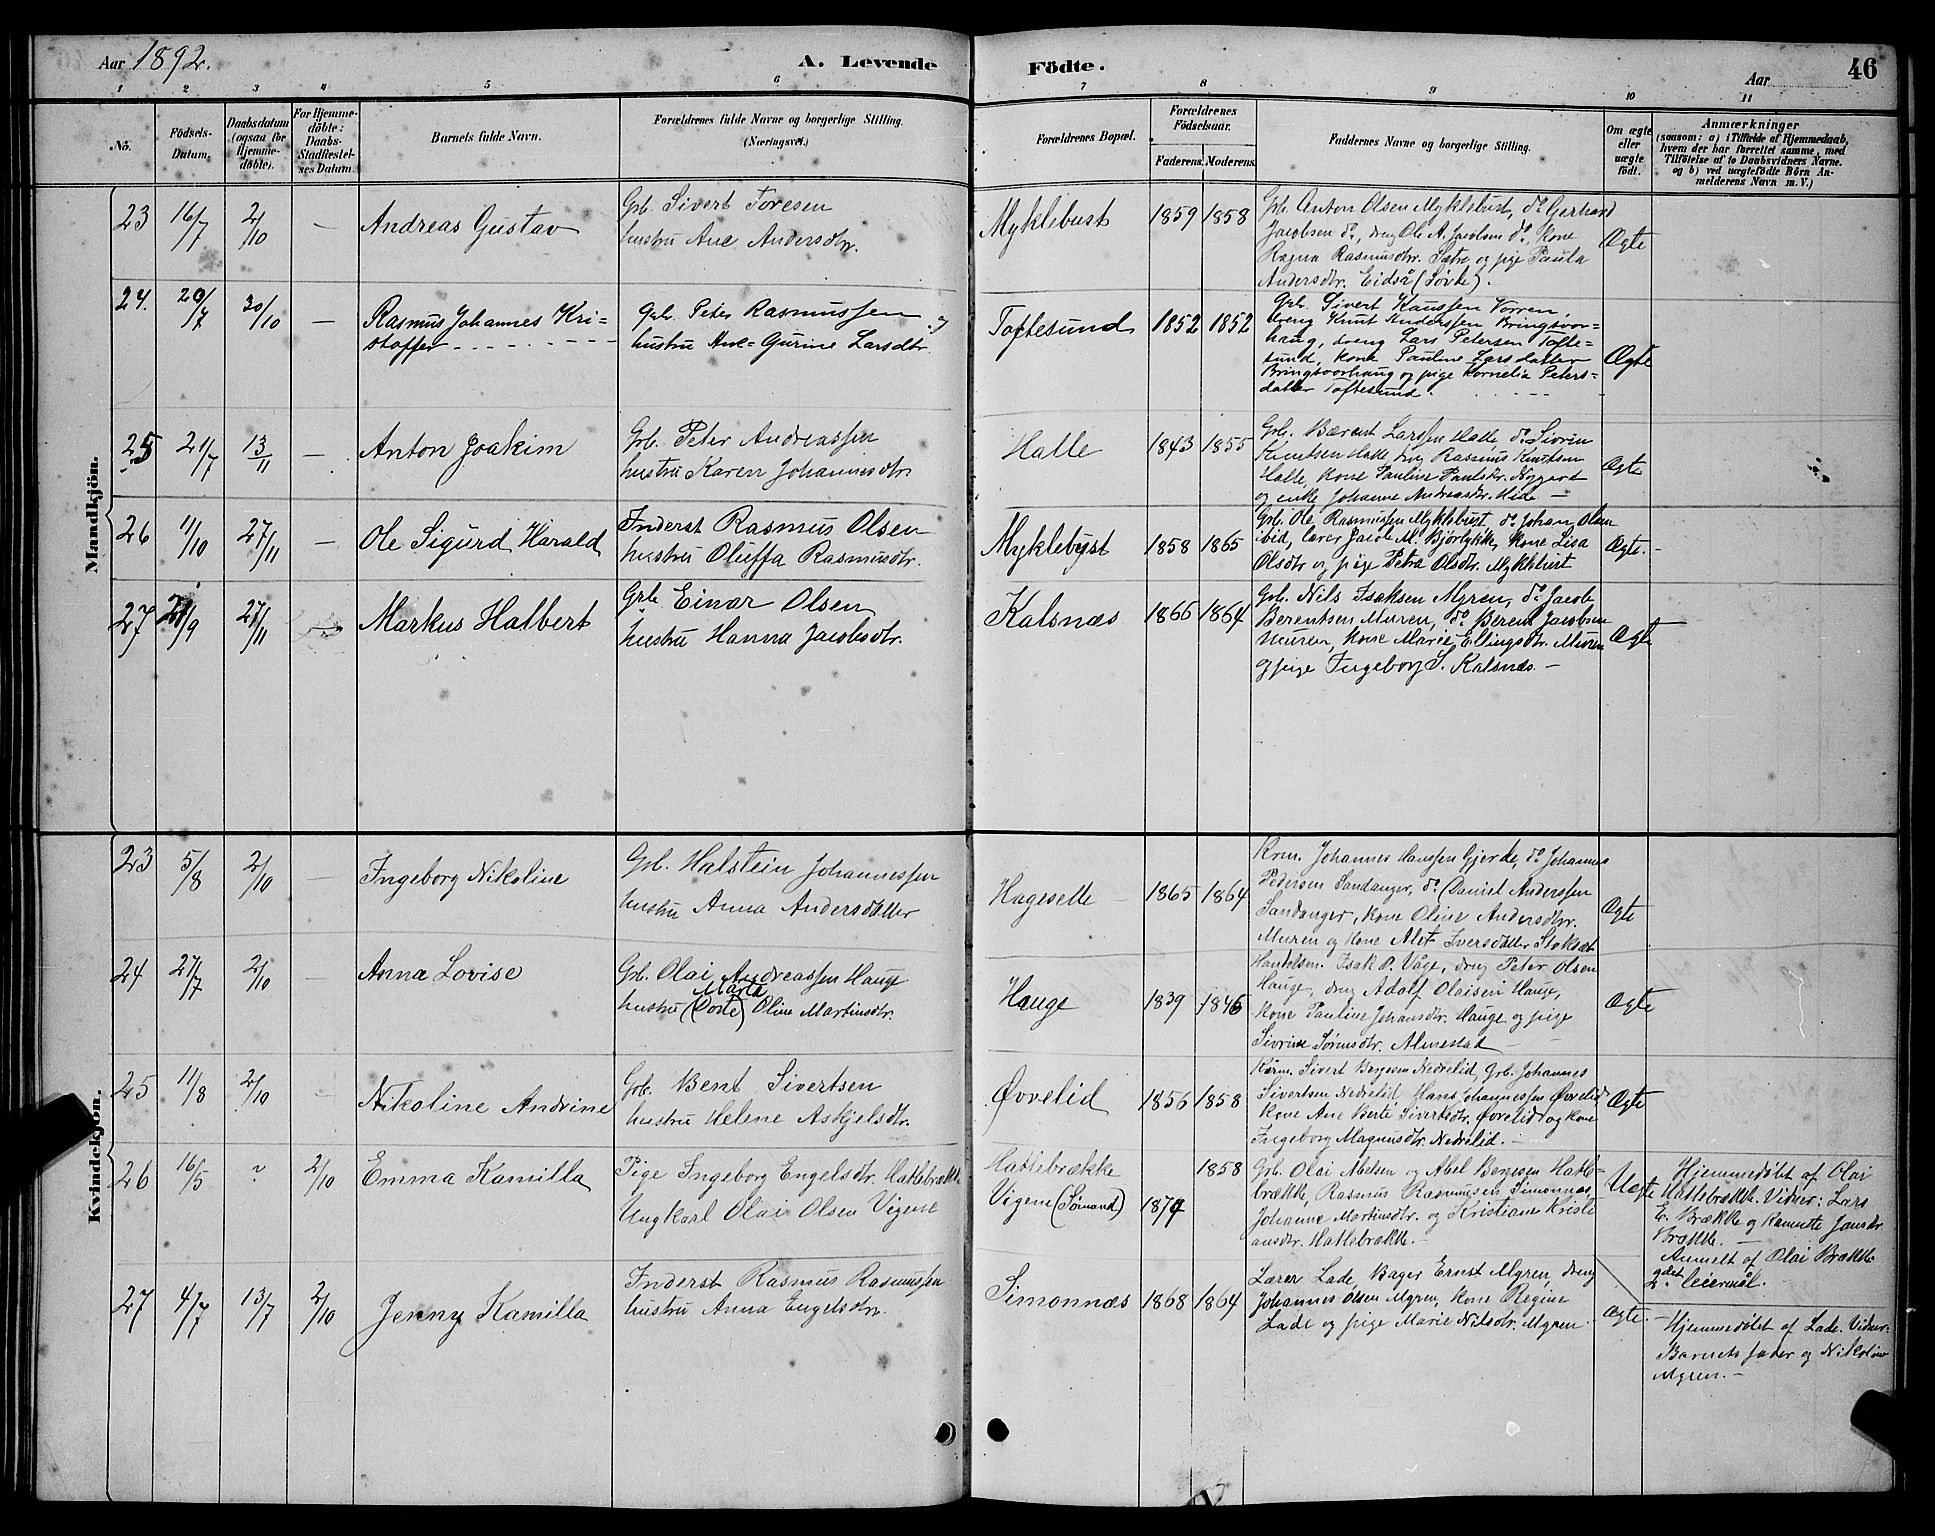 Aar 1892.
A. Levende Födte.
Aar
46
1 2 3 4 5 6 7 8 9 10 11
No.
Födsels-
Datum.
Daabsdatum
(ogsaa for
Hjemme-
döbte).
For Hjemme-
döbte:
Daabs-
Stadfestel-
ses Datum.
Barnets fulde Navn.
Forældrenes fulde Navne og borgerlige Stilling.
(Næringsvei.)
Forældrenes Bopæl.
Forældrenes
Födselsaar.
Faderens. Moderens.
Faddernes Navne og borgerlige Stilling.
Om ægte
eller
uægte
födt.
Anmærkninger
(saasom: a) i Tilfælde af Hjemmedaab,
hvem der har forrettet samme, med
Tilföielse af to Daabsvidners Navne.
og b) ved uægtefödte Börn An-
melderens Navn m. V.)
Mandkjön.
23 16/7 2/10 — Andreas Gustav
Grb. Sivert Toresen
hustru Ane Andersdtr.
Myklebust 1859 1858
Grb. Anton Olsen Myklebust, do Gerhard
Jacobsen do, dreng Ole A. Jacobsen do, Kone
Ragna Rasmusdtr. Sætre og pige Paula
Andersdtr. Eidså (Søvde).
Ægte
24. 20/7 30/10 — Rasmus Johannes Kri=
stoffer
Grb. Peter Rasmussen og
hustru Ane Gurine Larsdtr.
Toftesund 1852 1852
Grb. Sivert Knussen Vorren,
dreng Knut Anderssen Bringsvor=
haug, dreng Lars Petersen Tofte=
sund, kone Pauline Larsdatter
Bringsvorhaug og pige Kornelia Peters=
datter Toftesund.
Ægte
25 21/7 13/11 — Anton Joakim
Grb. Peter Andreassen
hustru Karen Johannesdtr.
Halle 1843 1855
Grb. Bærent Larssen Halle, do Sivrin
Knutsen Halle, dreng Rasmus Knutsen
Halle, Kone Pauline Paulsdtr. Nygard
og enke Johanne Andreasdtr. Hide —
Ægte
26 11/10 27/11 — Ole Sigurd Harald
Inderst Rasmus Olsen
hustru Oluffa Rasmusdtr.
Myklebust 1858 1865
Grb. Ole Rasmussen Myklebust, do Johan Olsen
ibid, lærer Jacob M. Bjørlykke, Kone Lisa
Olsdtr og pige Petra Olsdtr. Myklebust
Ægte. —
27 21/9 27/11 — Markus Halbert
Grb Einar Olsen
hustru Hanna Jacobsdtr.
Kalsnæs 1866 1864
Grb. Nils Isaksen Myren, do Jacob
Berentsen Muren, do Berent Jacobsen
Muren, Kone Marie Ellingsdtr. Muren
og pige Ingeborg S. Kalsnæs. —
Ægte
Kvindekjön.
23 5/8 2/10 — Ingeborg Nikoline
Grb. Halstein Johannessen
hustru Anna Andersdatter
Hageselle 1865 1864
Krm. Johannes Hanssen Gjerde, do Johannes
Pedersen Sandanger, do Daniel Anderssen
Sandanger, Kone Oline Andersdtr.
Muren og Kone Alet Iversdatter Stoksæt
Ægte
24 27/7 2/10 — Anna Lovise
Grb. Olai Andreassen Hauge
Marta
hustru (Dorte) Oline Martinsdtr.
Hauge 1839 1846
Handelsm. Isak P. Våge, dreng Peter Olsen
Hauge, dreng Adolf Olaisen Hauge,
Kone Pauline Johansdtr. Hauge og pige
Sivrine Sørinsdtr. Almestad —
Ægte
25 11/8 2/10 — Nikoline Andrine
Grb. Bent Sivertsen
hustru Helene Askjelsdtr.
Øvrelid 1856 1858
Kårm. Sivert Børgesen Nedrelid, Grb. Johannes
Sivertsen Nedrelid, Hans Johannessen Øvrelid
Kone Ane Berte Sivertsdtr. Øvrelid og kone
Ingeborg Magnusdtr. Nedrelid. —
Ægte
26 16/5 ? 2/10 Emma Kamilla
Pige Ingeborg Engelsdtr. Hatlebrække
Ungkarl Olai Olsen Vigene
Hatlebrække 1858
Vigene (Sørland) 1874
Grb. Olai Abelsen og Abel Børgesen Hatle-
brække, Rasmus Rasmussen Simonnæs,
Johanne Martinsdtr. og Kristiane Kristi
ansdtr. Hatlebrække. —
Uægte
Hjemmedøbt af Olai
Hatlebrække. Vidner: Lars
E. Brække og Jansdtr.
Brække. —
Anmelt af Olai Brække
2det leiermål. —
27 4/7 13/7 2/10 Jenny Kamilla
Inderst Rasmus Rasmussen
hustru Anna Engelsdtr.
Simonnæs 1868 1864
Lærer Lade, Bager Ernst Myren, dreng
Johannes Olsen Myren, Kone Regine
Lade og pige Marie Nilsdtr. Myren.
Ægte.
— Hjemmedøbt af Lade. Vidner:
Barnets fader og Nikoline
Myren. —